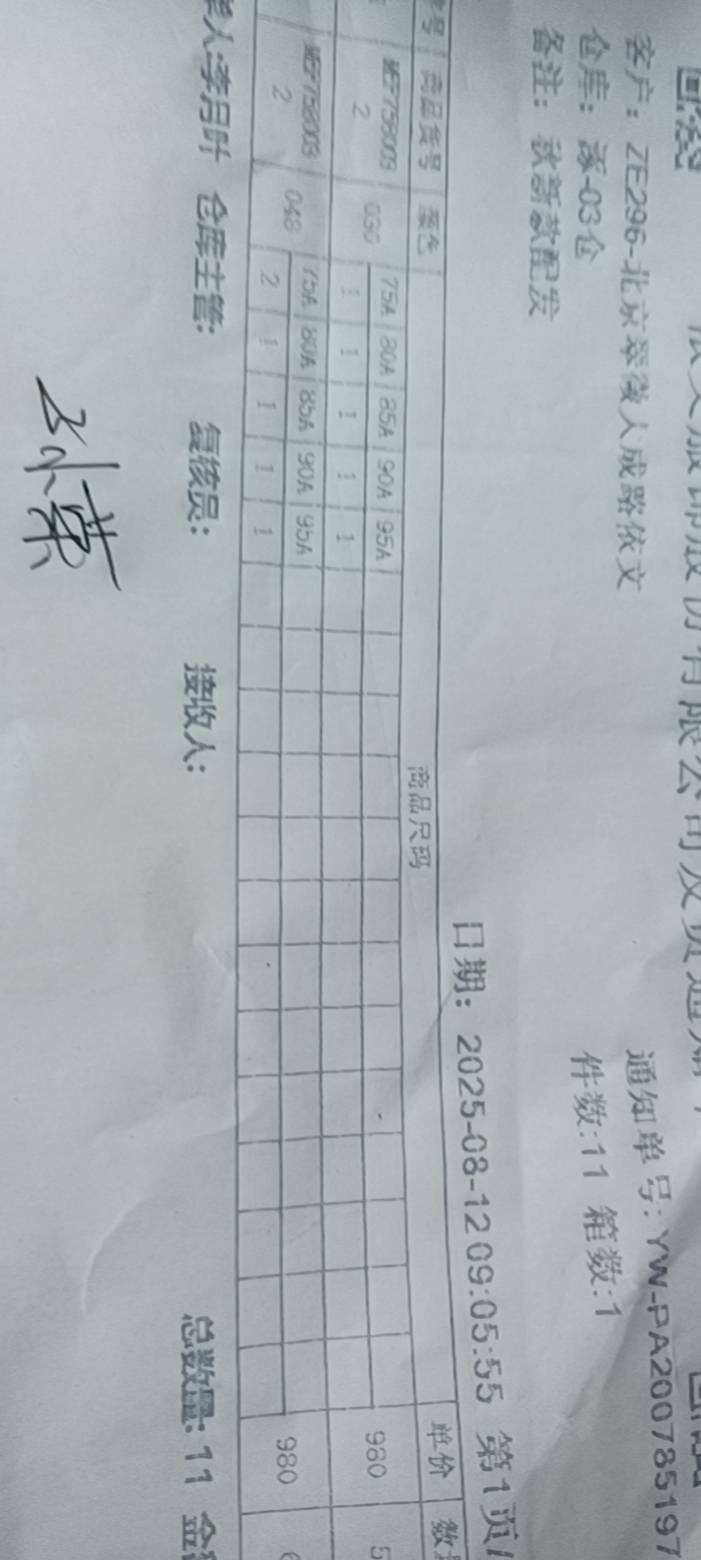 依文服饰股份有限公司发货通知
客户：ZE296-北京翠微大成路依文
通知单号：YW-PA200785197
仓库：涿-03仓
件数:11 箱数:1
备注：秋新款配发
日期：2025-08-12 09:05:55 第1页/
号 商品货号 颜色 商品尺码 单价 数
75A 80A 85A 90A 95A
2 030 1 1 1 1 1 980 5
75A 80A 85A 90A 95A
2 048 2 1 1 1 1 980 6
单人:李月叶 仓库主管: 复核员: 接收人: 总数量: 11 金